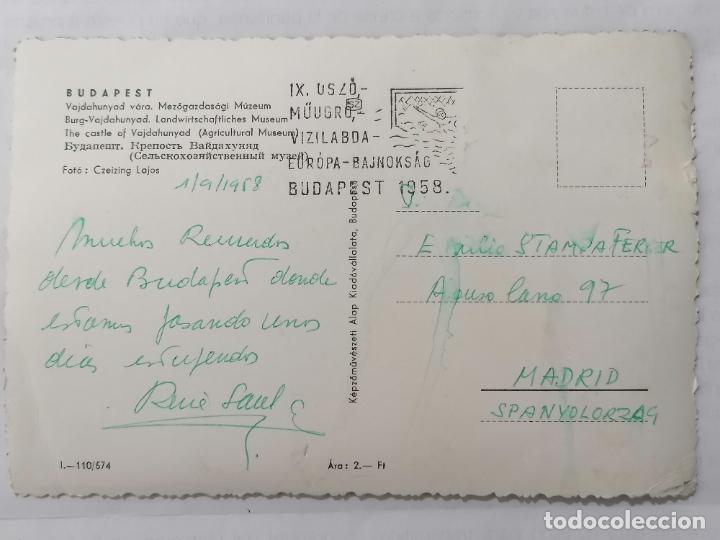 BUDAPEST
Vajdahunyad vára. Mezőgazdasági Múzeum
Burg-Vajdahunyad. Landwirtschaftliches Museum
The castle of Vajdahunyad (Agricultural Museum)
Будапешт. Крепость Вайдахуняд
(Сельскохозяйственный музей)
Fotó: Czeizing Lajos
IX. ÚSZÓ,-
MŰUGRÓ,-
VIZILABDA-
EURÓPA-BAJNOKSÁG
BUDAPEST 1958.
1/9/1958
Muchos Recuerdos
desde Budapest donde
estamos pasando unos
dias estupendos
Képzőművészeti Alap Kiadóvállalata, Budapest
Emilio STAMPA FERRER
97
MADRID
SPANYOLORZAG
I.—110/574
Ára: 2.— Ft
todocoleccion.net